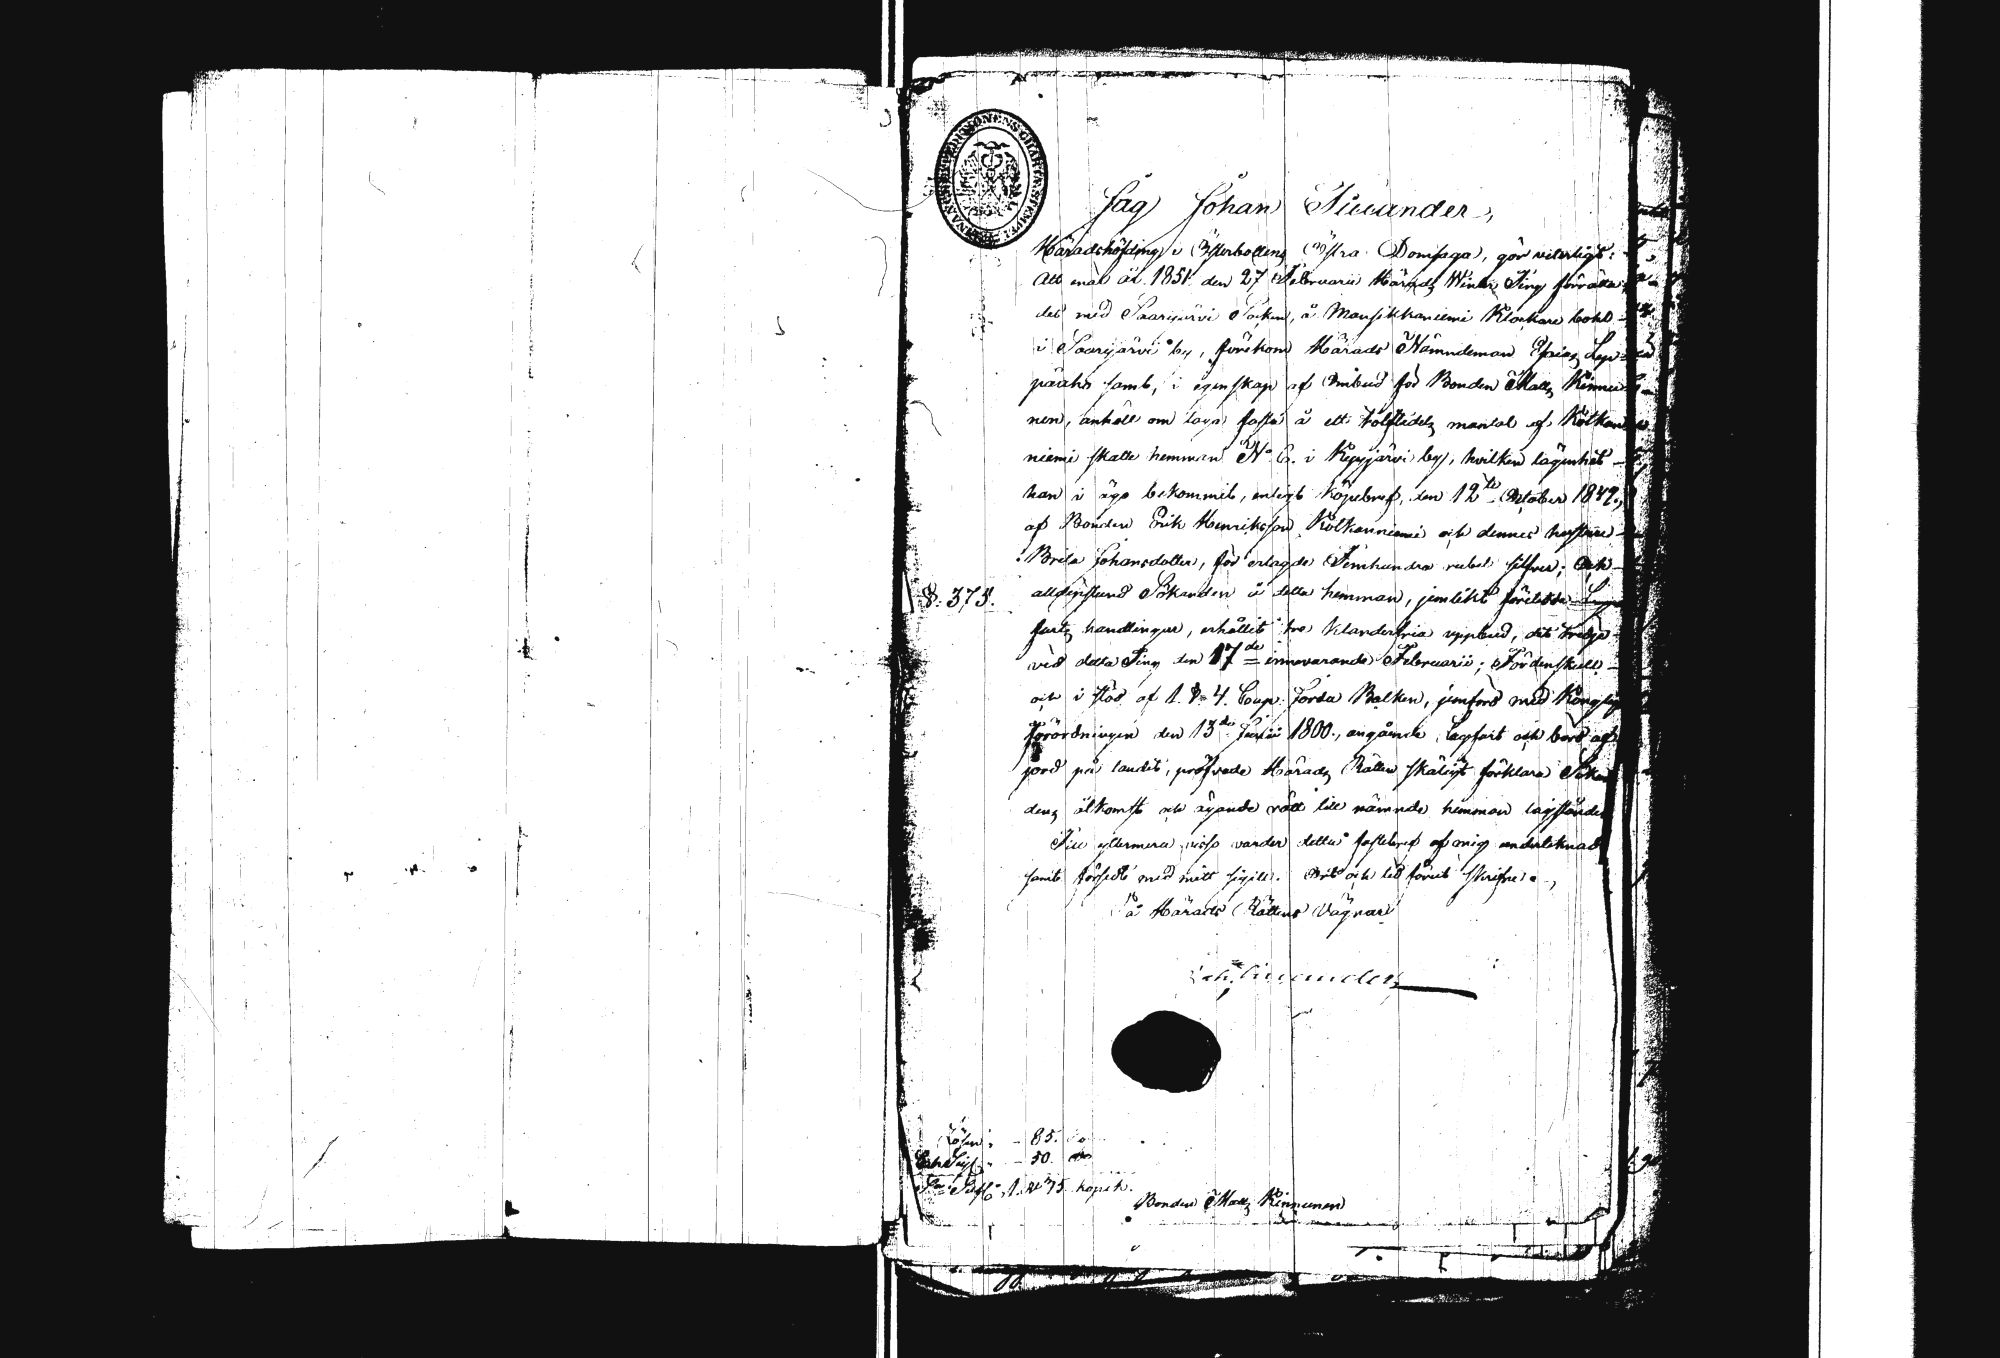 Jag Johan Tuuander,
Häradshöfding i Österbottens Östra Domsaga, gör veterligt:
Att enär år 1851 den 27 Februarii Härads Winter Ting förrätta-
des med Saarijärvi Socken, å Mansikkaniemi Klockare bohl
i Saarijärvi by, förekom Härads Nämndeman Lep-
samt, i egenskap af Ombud för Bonden Matts Kinnu-
nen, anhöll om laga fasta å ett tolftedels mantal af Kolkan-
niemi skatte hemman No 6. i by, hvilken lägenhet
han i ägo bekommit, enligt köpebref, den 12te October 1849,
af Bonden Erik Henriksson Kolkanniemi och dennes hustru
Brita Johansdotter, för erlagde Femhundra rubel silfver; Och
§. 375.
alldenstund Sökanden å detta hemman, jemlikt företedde Lag-
farts handlingar, erhållit tre klanderfria uppbud, det tredje
vid detta Ting den 17de innevarande Februarii; Fördenskull
och i stöd af 1. § 4. Cap. Jorda Balken, jemförd med Kongliga
Förordningen den 13de Junii 1800, angående Lagfart och börd af
jord på landet, pröfvade Härads Rätten skäligt förklara Sökan-
dens åtkomst och ägande rätt till nämnde hemman lagståndet
Till yttermera visso varder detta fastebref af mig undertecknad
samt försedt med mitt sigill. Ort och tid förut skrifne.
På Härads Rättens Vägnar
Joh. Tuuander
Lösen: 85.
50.
1. R. 75. kopek.
Bonden Matts Kinnunen